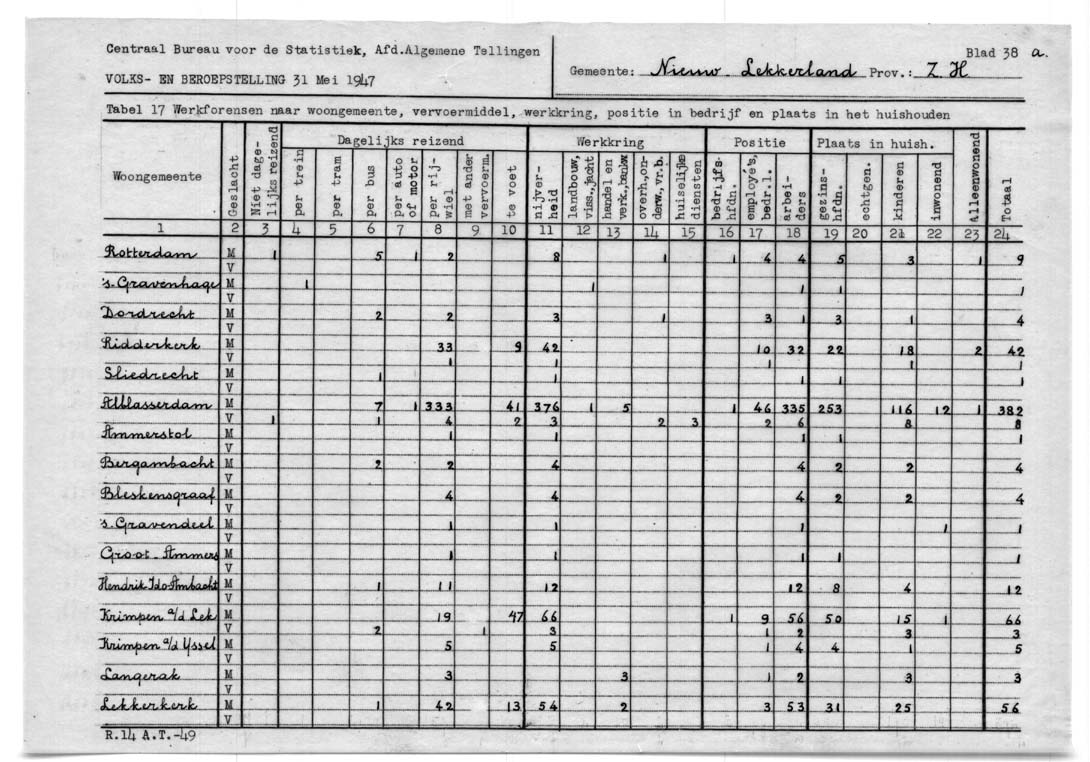 Centraal Bureau voor de Statistiek, Afd.Algemene Tellingen
VOLKS- EN BEROEPSTELLING 31 Mei 1947
Blad 38 a.
Gemeente: Nieuw-Lekkerland Prov.: Z.H
Tabel 17 Werkforensen naar woongemeente, vervoermiddel, werkkring, positie in bedrijf en plaats in het huishouden
Woongemeente Geslacht Niet dage-lijks reizend Dagelijks reizend Werkkring Positie Plaats in huish. Alleenwonend Totaal
per trein per tram per bus per auto of motor per rij-wiel met ander vervoerm. te voet nijver-heid landbouw, viss.,jacht handel en verk.,bankw overh.,on-derw.,vr.b. huiselijke diensten bedrijfs-hfdn. employé's, bedr.l. arbei-ders gezins-hfdn. echtgen. kinderen inwonend
1 2 3 4 5 6 7 8 9 10 11 12 13 14 15 16 17 18 19 20 21 22 23 24
Rotterdam M 1 5 1 2 8 1 1 4 4 5 3 1 9
V
's-Gravenhage M 1 1 1 1 1
V
Dordrecht M 2 2 3 1 3 1 3 1 4
V
Ridderkerk M 33 9 42 10 32 22 18 2 42
V 1 1 1 1 1
Sliedrecht M 1 1 1 1 1
V
Alblasserdam M 7 1 333 41 376 1 5 1 46 335 253 116 12 1 382
V 1 1 4 2 3 2 3 2 6 8 8
Ammerstol M 1 1 1 1 1
V
Bergambacht M 2 2 4 4 2 2 4
V
Bleskensgraaf M 4 4 4 2 2 4
V
's-Gravendeel M 1 1 1 1 1
V
Groot-Ammers M 1 1 1 1 1
V
Hendrik Ido Ambacht M 1 11 12 12 8 4 12
V
Krimpen a/d Lek M 19 47 66 1 9 56 50 15 1 66
V 2 1 3 1 2 3 3
Krimpen a/d Yssel M 5 5 1 4 4 1 5
V
Langerak M 3 3 1 2 3 3
V
Lekkerkerk M 1 42 13 54 2 3 53 31 25 56
V
R.14 A.T.-49